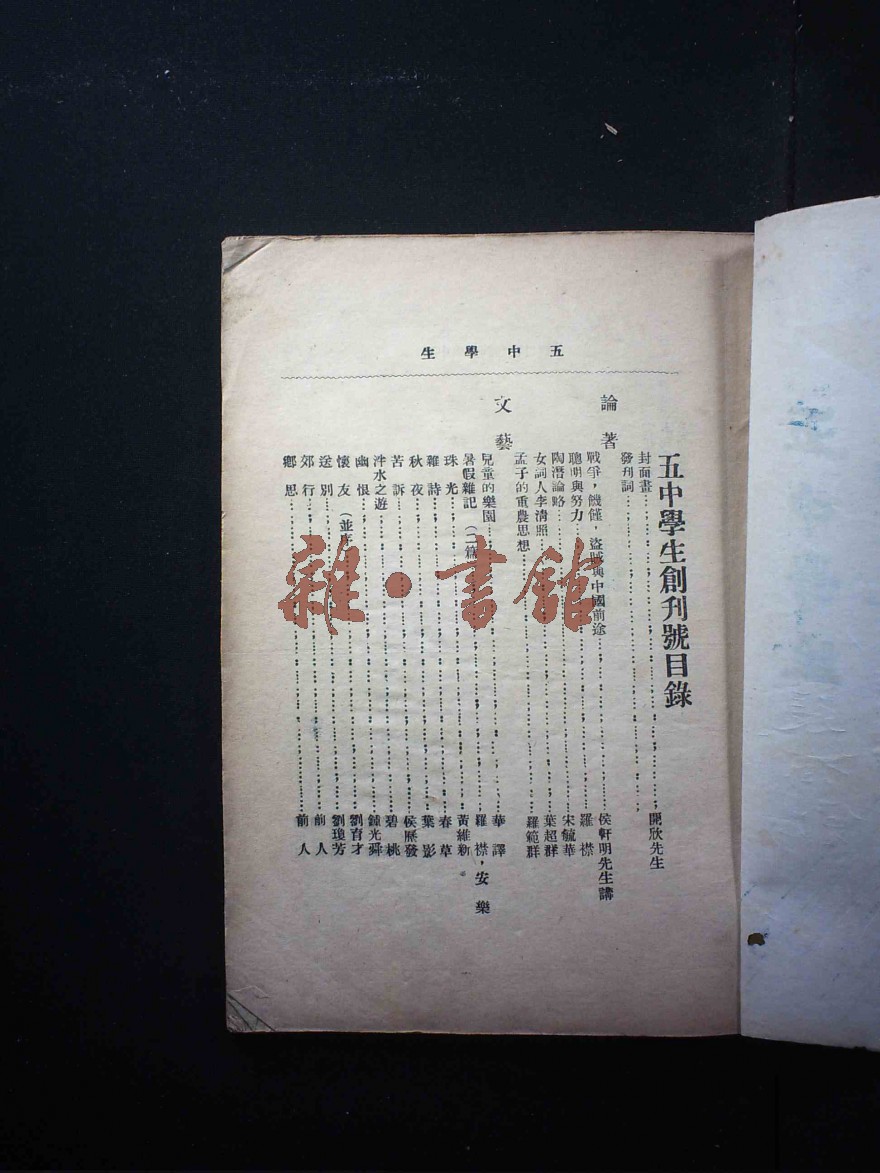 五中學生
五中學生創刊號目錄
封面畫……開欣先生
發刊詞……
論著
戰爭，饑饉，盜賊與中國前途……侯軒明先生講
聰明與努力……羅襟
陶潛論略……宋毓華
女詞人李淸照……葉超群
孟子的重農思想……羅範群
文藝
兒童的樂園……華譯
暑假雜記（二篇……羅襟，安樂
珠光……黃維新
雜詩……春草
秋夜……葉影
苦訴……侯歷發
泮水之遊……碧桃
幽恨……鍾光舜
懷友（並序……劉育才
送別……劉瓊芳
郊行……前人
鄉思……前人
雜·書館